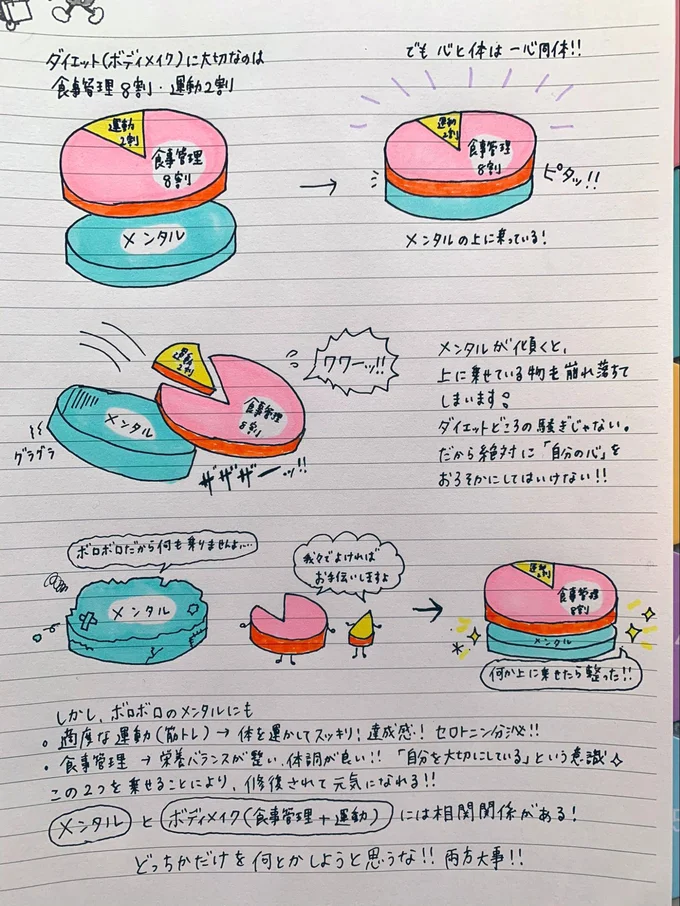 ダイエット(ボディメイク)に大切なのは
食事管理8割・運動2割
運動
2割
食事管理
8割
メンタル
でも 心と体は 一心同体!!
運動
2割
食事管理
8割
ピタッ!!
メンタルの上に乗っている!
運動
2割
食事管理
8割
メンタル
グラグラ
ザザザーッ!!
ワワーッ!!
メンタルが傾くと、
上に乗せている物も崩れ落ちて
しまいます。
ダイエットどころの騒ぎじゃない。
だから絶対に「自分の心」を
おろそかにしてはいけない!!
ボロボロだから何も乗りませんよ…
メンタル
我々でよければ
お手伝いしますよ
運動
2割
食事管理
8割
メンタル
何か上に乗せたら整った!!
しかし、ボロボロのメンタルにも
・適度な運動(筋トレ)→体を動かしてスッキリ!達成感!セロトニン分泌!!
・食事管理→栄養バランスが整い、体調が良い!!「自分を大切にしている」という意識✧
この2つを乗せることにより、修復されて元気になれる!!
メンタル と ボディメイク(食事管理+運動) には相関関係がある!
どっちかだけを何とかしようと思うな!!両方大事!!